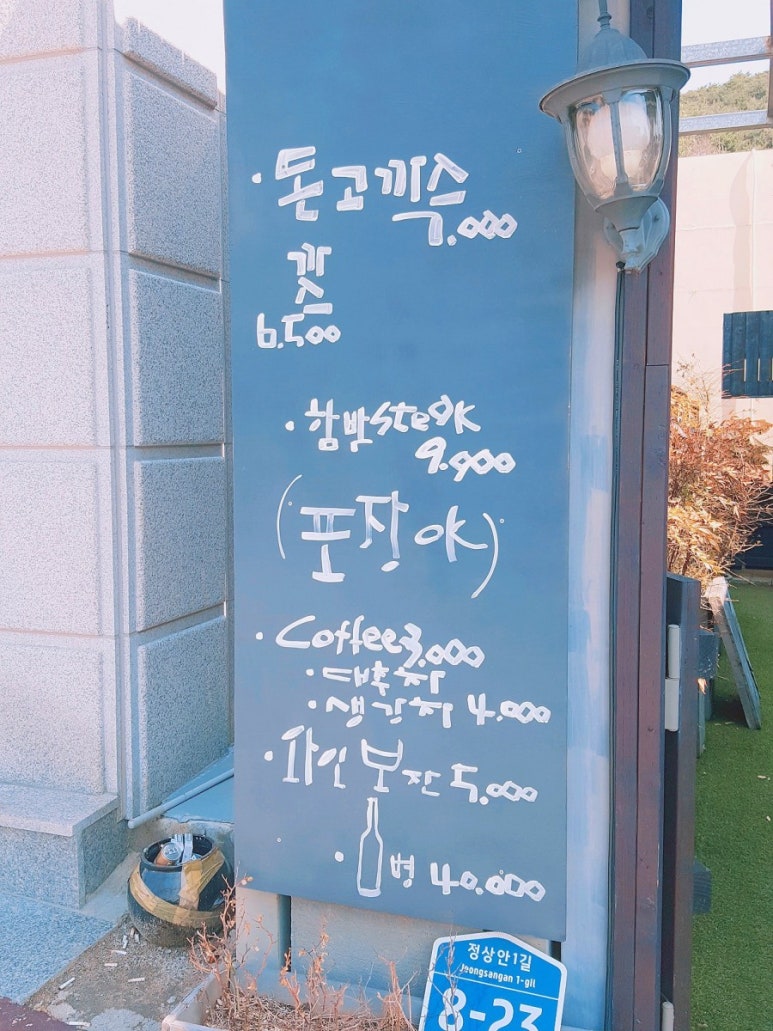 · 돈고까스
5.000
까
스
6.500
· 함박steak
9.900
(포장 OK)
· Coffee 3.000
· 대추차
· 생강차 4.000
· 와인 잔 5.000
· 병 40.000
정상안1길
Jeongsangan 1-gil
8-23